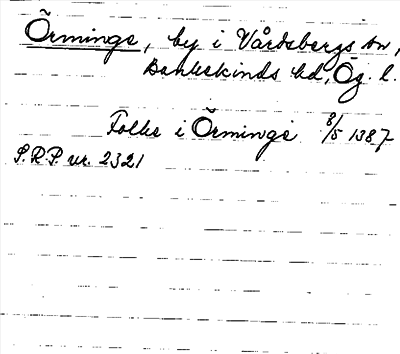 Örminge, by i Vårdsbergs sn,
Bankekinds hd, Ög. l.
Folke i Örminge 8/5 1387
S.R.P. nr. 2321